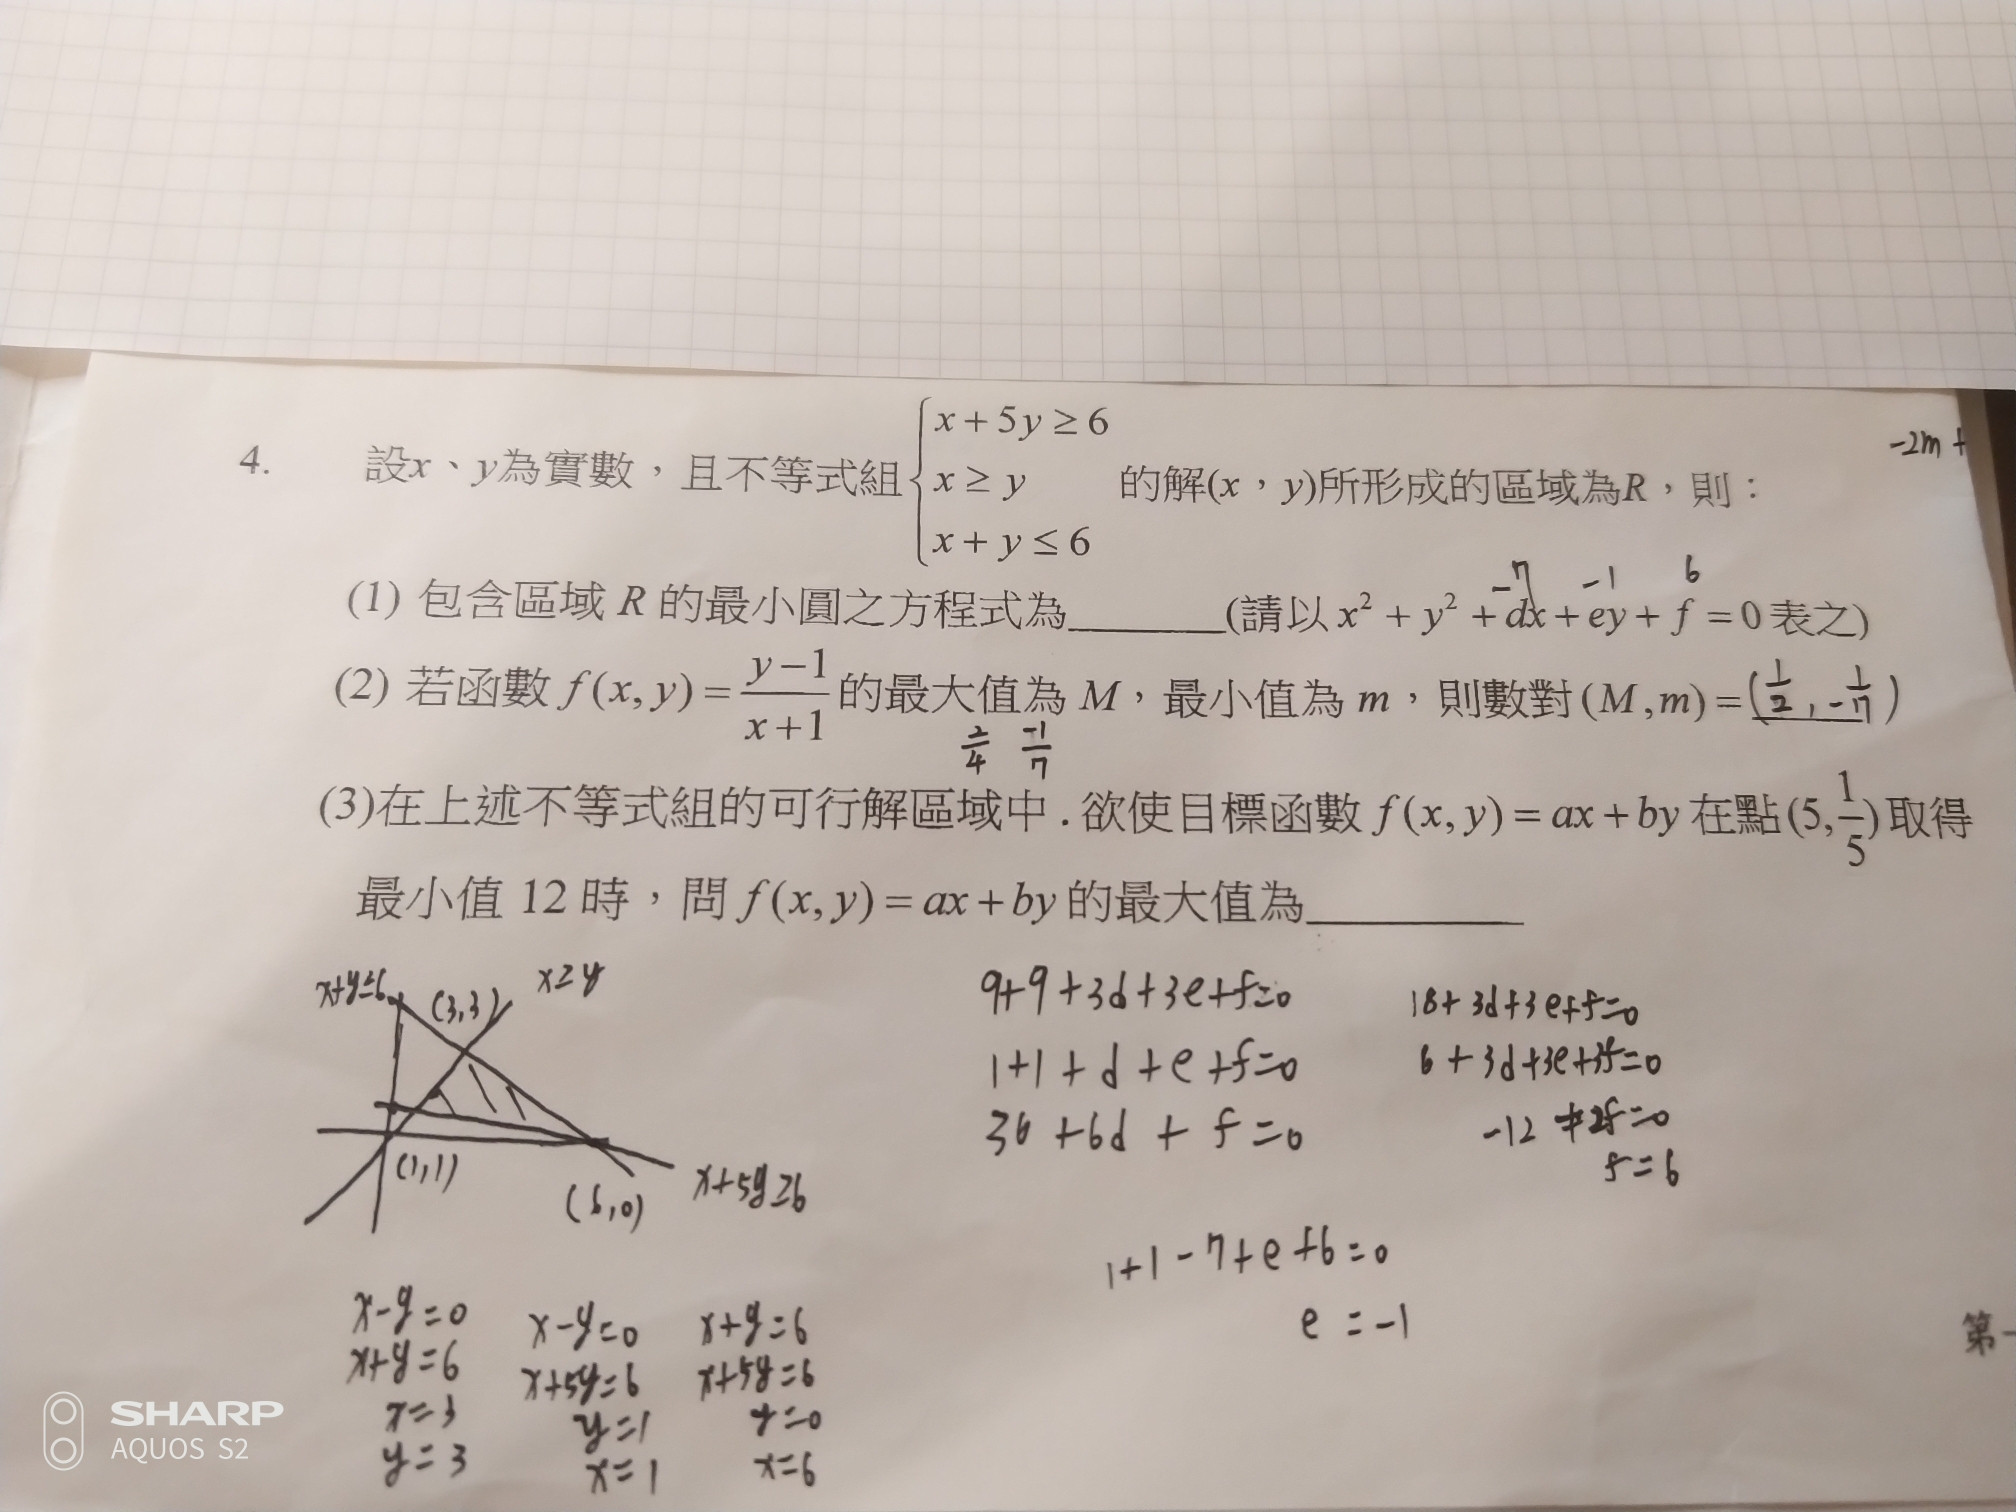 -2m +
4. 設x、y為實數，且不等式組 { x + 5y ≥ 6
x ≥ y
x + y ≤ 6 的解(x，y)所形成的區域為R，則：
-7 -1 6
(1) 包含區域 R 的最小圓之方程式為______(請以 x² + y² + dx + ey + f = 0 表之)
(2) 若函數 f(x, y) = (y-1)/(x+1) 的最大值為 M，最小值為 m，則數對 (M, m) = (1/2, -1/7)
2/4 -1/7
(3)在上述不等式組的可行解區域中.欲使目標函數 f(x, y) = ax + by 在點(5, 1/5)取得
最小值 12 時，問 f(x, y) = ax + by 的最大值為________
x+y≤6 (3,3) x≥y
(1,1)
(6,0)
x+5y≥6
9+9+3d+3e+f=0
1+1+d+e+f=0
36+6d+f=0
18+3d+3e+f=0
6+3d+3e+3f=0
-12+2f=0
f=6
1+1-7+e+6=0
e=-1
x-y=0
x+y=6
x=3
y=3
x-y=0
x+5y=6
y=1
x=1
x+y=6
x+5y=6
y=0
x=6
第一
SHARP
AQUOS S2